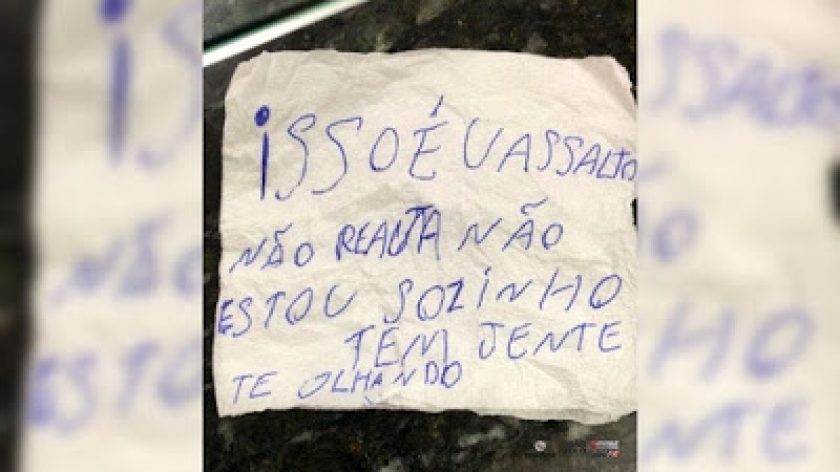 iSSO É UASSALTO
NÃO REAJTA NÃO
ESTOU SOZINHO
TEM JENTE
TE OLHANDO